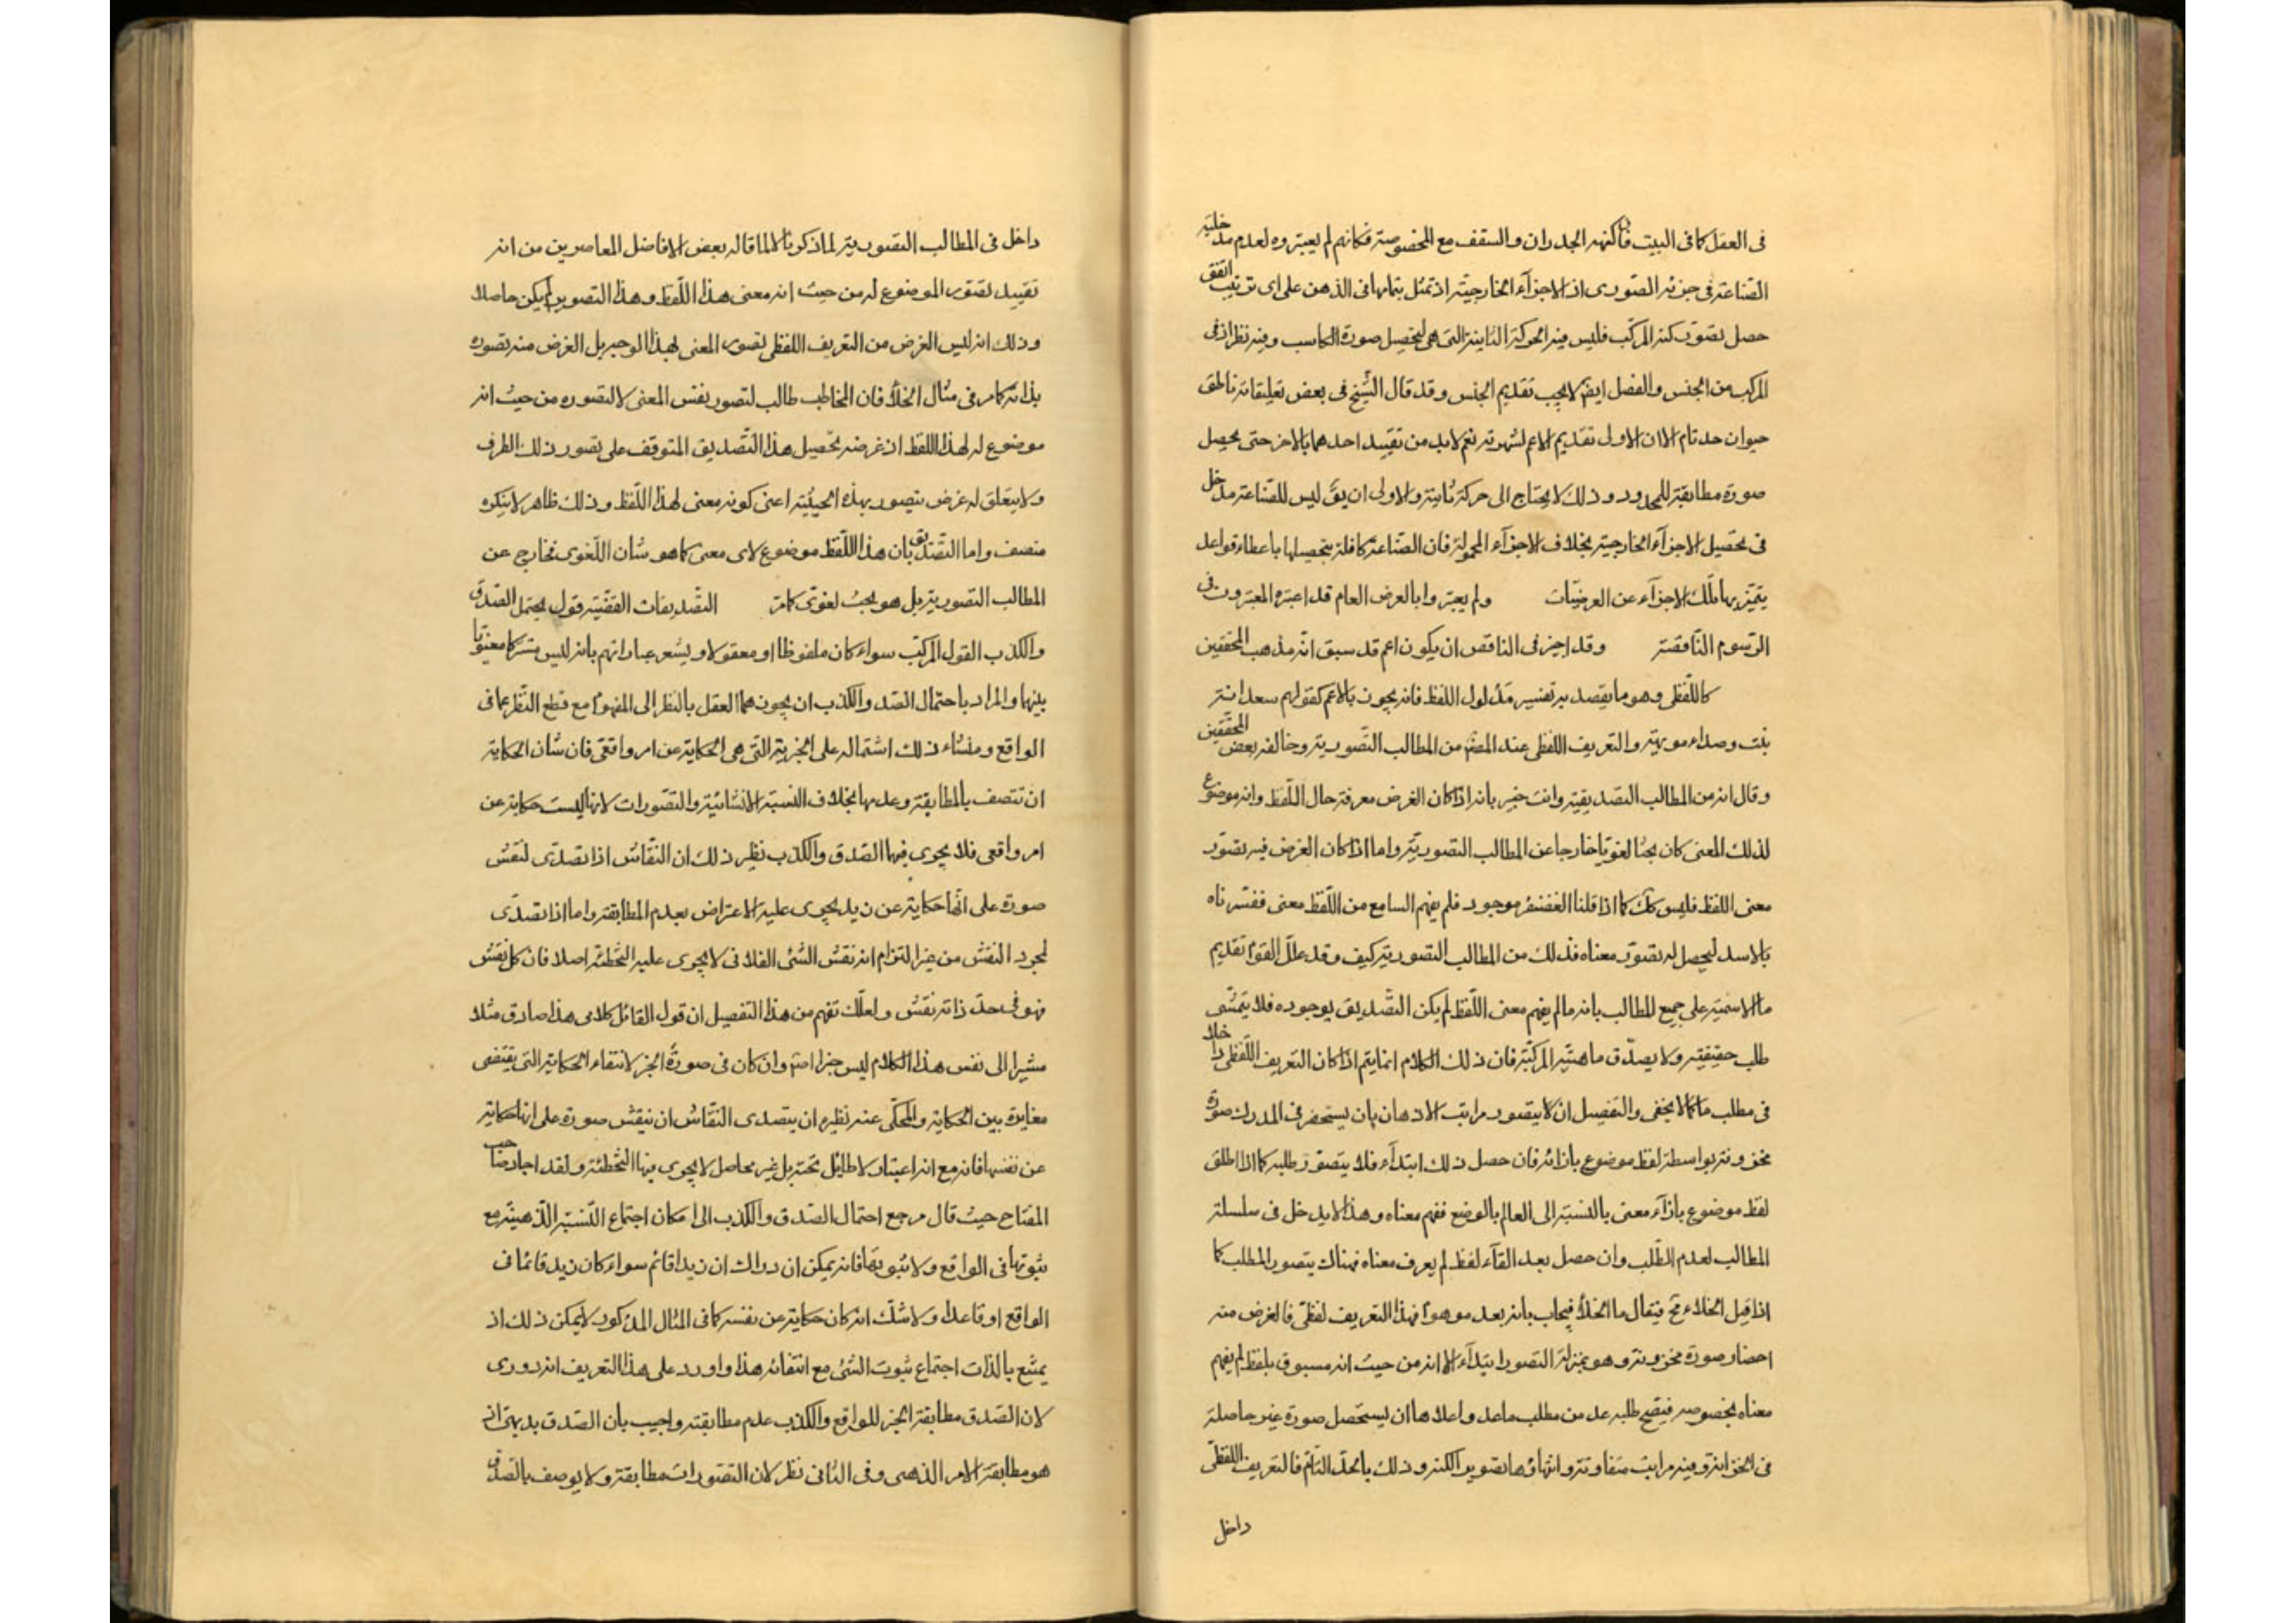 فى العقل كما فى البيت فان كنهه الجدران والسقف مع المخصوصة فكانهم لم يعتبروه لعدم مدخلية
الصناعة فى جزئه الصورى اذ الاجزآء الخارجية اذ تمثل بتمامها فى الذهن على اى ترتيب اتفق
حصل تصور كنه المركب فليس فيه الحركة الثانية التى هى لتحصيل صورة الكاسب وفيه نظر اذ فى
المركب من الجنس والفصل ايض لا يجب تقديم الجنس وقد قال الشيخ فى بعض تعليقاته ناطق
حيوان حد تام الا ان الاولى تقديم الاعم لشهرته نعم لابد من تقييد احدهما بالاخر حتى يحصل
صورة مطابقة للمحدود وذلك لا يحتاج الى حركة ثانية والاولى ان يق ليس للصناعة مدخل
فى تحصيل الاجزآء الخارجية بخلاف الاجزآء المحمولة فان الصناعة كافلة بتحصيلها باعطاء قواعد
يتميز بها تلك الاجزآء عن العرضيات ولم يعتبروا بالعرض العام قد اعتبره المعتبرون فى
الرسوم الناقصة وقد اجيز فى الناقص ان يكون اعم قد سبق انه مذهب المحققين
كاللفظى وهو ما يقصد به تفسير مدلول اللفظ فانه يجوز بالاعم كقولهم سعدانة
نبت وصداء مويهة والتعريف اللفظى عند المص من المطالب التصورية وخالفه بعض المحققين
وقال انه من المطالب التصديقية وانت خبير بانه اذا كان الغرض معرفة حال اللفظ وانه موضوع
لذلك المعنى كان بحثا لغويا خارجا عن المطالب التصورية واما اذا كان الغرض فيه تصور
معنى اللفظ فليس كك كما اذا قلنا الغضنفر موجود فلم يفهم السامع من اللفظ معنى ففسرناه
بالاسد ليحصل له تصور معناه فذلك من المطالب التصورية كيف وقد علل القوم تقديم
ما الاسمية على جميع المطالب بانه ما لم يفهم معنى اللفظ لم يكن التصديق بوجوده فلا يتمشى
طلب حقيقته ولا يصدق ما هية المركبة فان ذلك الكلام انما يتم اذا كان التعريف اللفظى داخلا
فى مطلب ما كما لا يخفى والتفصيل ان لا يتصور مراتب الاذهان بان يستحضر فى المدرك صورة
مخزونة بواسطة لفظ موضوع بازائه فان حصل ذلك ابتدآء فلا يتصور طلبه كما اذا اطلق
لفظ موضوع بازآء معنى بالنسبة الى العالم بالوضع ففهم معناه وهذا لا يدخل فى سلسلة
المطالب لعدم الطلب وان حصل بعد القآء لفظ لم يعرف معناه فهناك يتصور المطلب كما
اذا قيل الخلاء مح فيقال ما الخلأ فيجاب بانه بعد موهوم فهذا التعريف لفظى فالغرض منه
احضار صورة مخزونة وهو بمنزلة التصور ابتدآء الا انه من حيث انه مسبوق بلفظ لم يفهم
معناه بخصوصه فيتضح طلبه عد من مطلب ما عد واعلاها ان يستحصل صورة غير حاصلة
فى الخزانة وفيه مراتب متفاوتة وانتهاؤها تصوير الكنه وذلك بالحد التام فالتعريف اللفظى
داخل
داخل فى المطالب التصورية لما ذكرنا لا لما قاله بعض الافاضل المعاصرين من انه
تقييد تصور الموضوع له من حيث انه معنى هذا اللفظ وهذا التصوير لم يكن حاصلا
وذلك انه ليس الغرض من التعريف اللفظى تصور المعنى بهذا الوجه بل الغرض منه تصوره
بذاته كما مر فى مثال الخلأ فان المخاطب طالب لتصور نفس المعنى لا لتصوره من حيث انه
موضوع له لهذا اللفظ اذ غرضه تحصيل هذا التصديق المتوقف على تصور ذلك الطرف
ولا يتعلق له غرض بتصوره بهذه الحيثية اعنى كونه معنى لهذا اللفظ وذلك ظاهر لا ينكره
منصف واما التصديق بان هذا اللفظ موضوع لاى معنى كما هو شان اللغوى فخارج عن
المطالب التصورية بل هو بحث لغوى كما مر التصديقات القضية قول يحتمل الصدق
والكذب القول المركب سواء كان ملفوظا او معقولا ويشعر عباراتهم بانه ليس مشتركا معنويا
بينها والمراد باحتمال الصدق والكذب ان يجوزهما العقل بالنظر الى المفهوم مع قطع النظر عما فى
الواقع ومنشاء ذلك اشتماله على الخبرية التى هى الحكاية عن امر واقعى فان شان الحكاية
ان تتصف بالمطابقة وعدمها بخلاف النسبة الانشائية والتصورات لانها ليست حكاية عن
امر واقعى فلا يجرى فيها الصدق والكذب نظير ذلك ان النقاش اذا تصدى لنقش
صورة على انها حكاية عن زيد يجرى عليه الاعتراض بعدم المطابقة واما اذا تصدى
لمجرد النقش من غير التزام انه نقش الشئ الفلانى لا يجرى عليه التخطئة اصلا فان كل نقش
فهو فى حد ذاته نقش ولعلك تفهم من هذا التفصيل ان قول القائل كلامى هذا صادق مثلا
مشيرا الى نفس هذا الكلام ليس خبرا اصلا وان كان فى صورة الخبر لانتفاء الحكاية التى يقتضى
مغايرة بين الحكاية والمحكى عنه نظيره ان يتصدى النقاش ان ينقش صورة على انها حكاية
عن نفسها فانه مع انه اعتبار لا طائل تحته بل غير محاصل لا يجرى فيها التخطئة ولقد اجاد صاحب
المفتاح حيث قال مرجع احتمال الصدق والكذب الى امكان اجتماع النسبة الذهنية مع
ثبوتها فى الواقع ولا ثبوتها فانه يمكن ادراك ان زيدا قائم سواء كان زيد قائما فى
الواقع او قاعدا ولا شك انه كان حكاية عن نفسه كما فى المثال المذكور لا يمكن ذلك اذ
يمتنع بالذات اجتماع ثبوت الشئ مع انتفائه هذا واورد على هذا التعريف انه دورى
لان الصدق مطابقة الخبر للواقع والكذب عدم مطابقته واجيب بان الصدق بديهى او انه
هو مطابقة الامر الذهنى وفى الثانى نظر لان التصورات مطابقة ولا يوصف بالصدق